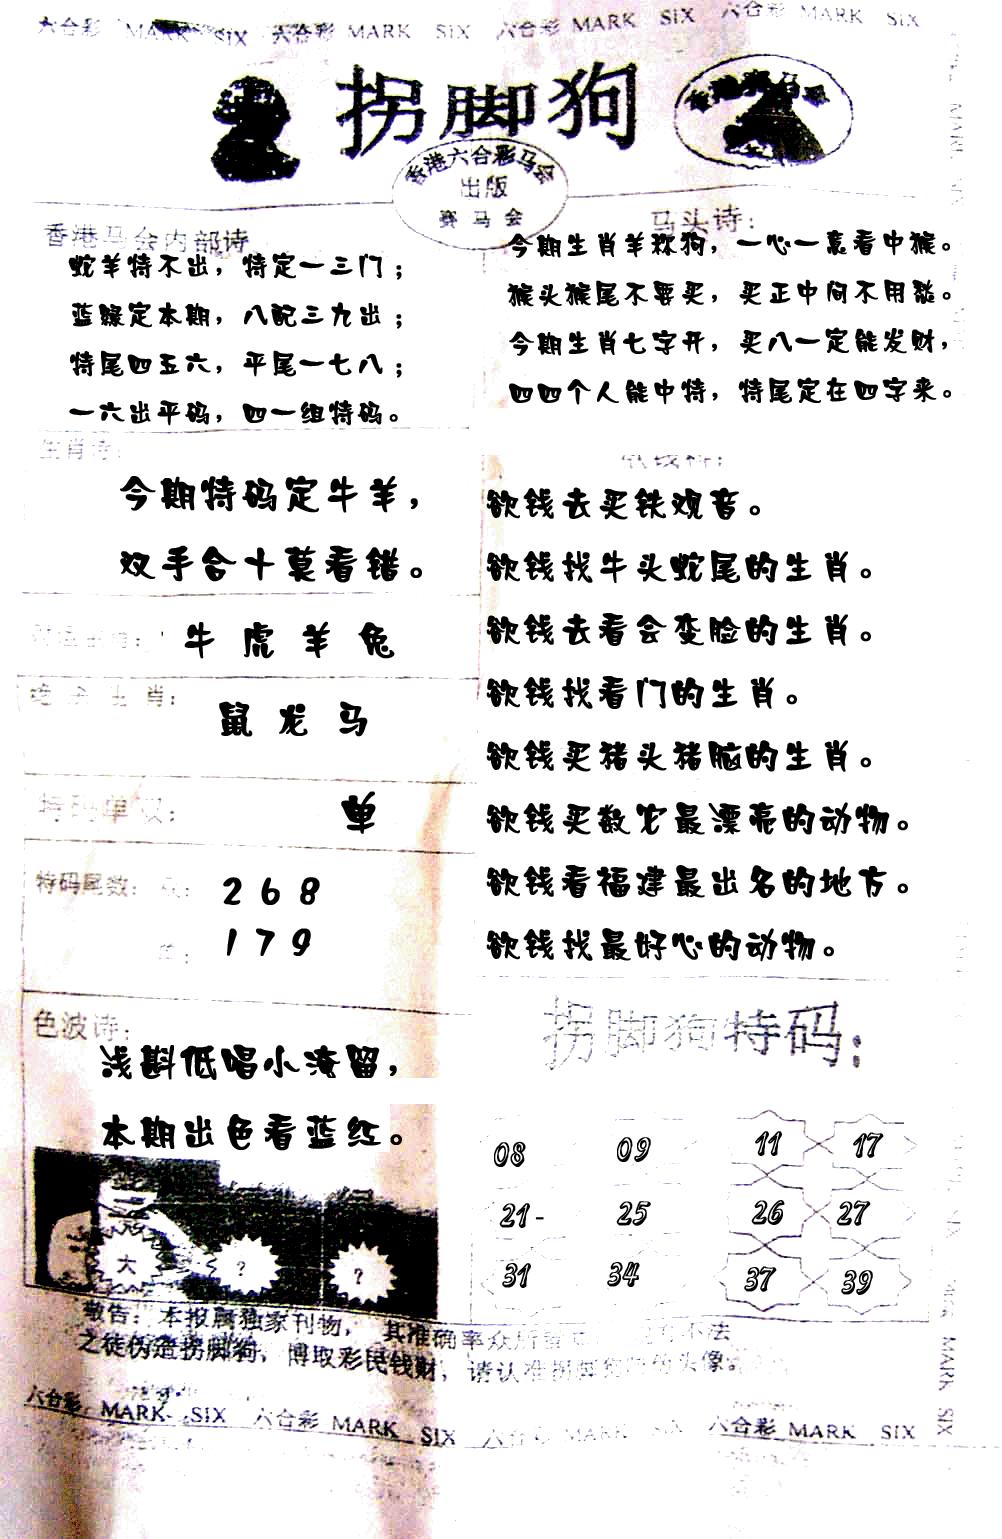 六合彩 MARK SIX 六合彩 MARK SIX 六合彩 MARK SIX 六合彩 MARK SIX
拐脚狗
香港六合彩马会
出版
赛马会
香港马会内部诗
蛇羊特不出，特定一三门；
蓝绿定本期，八配三九出；
特尾四五六，平尾一七八；
一六出平码，四一组特码。
马头诗：
今期生肖羊称狗，一心一意看中猴。
猴头猴尾不要买，买正中间不用愁。
今期生肖七字开，买八一定能发财，
四四个人能中特，特尾定在四字来。
生肖诗：
今期特码定牛羊，
双手合十莫看错。
牛 虎 羊 兔
生肖：
鼠 龙 马
特码单双：
单
特码尾数：
2 6 8
1 7 9
欲钱去买铁观音。
欲钱找牛头蛇尾的生肖。
欲钱去看会变脸的生肖。
欲钱找看门的生肖。
欲钱买猪头猪脑的生肖。
欲钱买数它最漂亮的动物。
欲钱看福建最出名的地方。
欲钱找最好心的动物。
色波诗：
浅斟低唱小淹留，
本期出色看蓝红。
大 ? ?
拐脚狗特码：
08 09 11 17
21- 25 26 27
31 34 37 39
敬告：本报属独家刊物，其准确率众所 不法
之徒伪造拐脚狗，博取彩民钱财，请认准拐脚 头像
六合彩 MARK SIX 六合彩 MARK SIX 六合彩 MARK SIX 六合彩 MARK SIX
MARK SIX